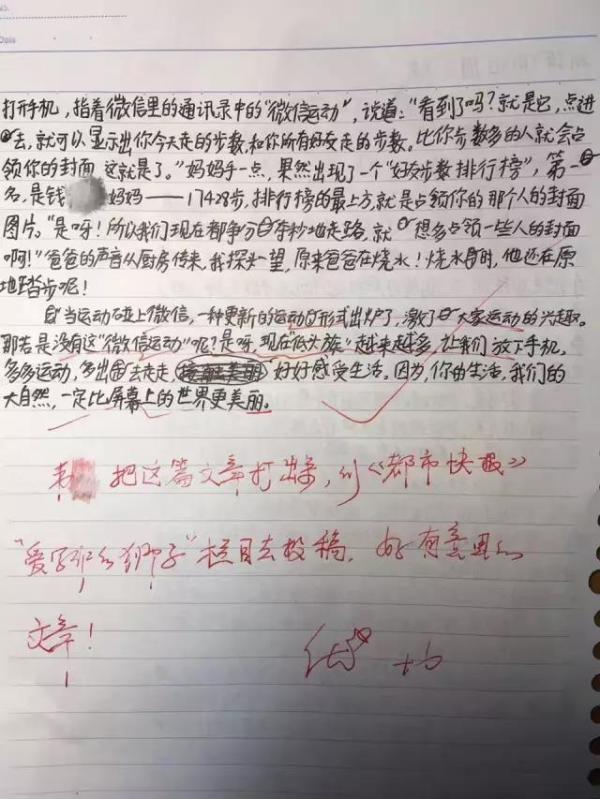 打开手机，指着微信里的通讯录中的“微信运动”，说道：“看到了吗？就是它，点进
去，就可以显示出你今天走的步数，和你所有好友走的步数。比你步数多的人就会占
领你的封面，这就是了。”妈妈手一点，果然出现了一个“好友步数排行榜”，第一
名，是钱 妈妈——17428步，排行榜的最上方，就是占领你的那个人的封面
图片。“是呀！所以我们现在都争分夺秒地走路，就想多占领一些人的封面
啊！”爸爸的声音从厨房传来，我探头一望，原来爸爸在烧水！烧水时，他还在原
地踏步呢！
当运动碰上微信，一种更新的运动形式出炉了，激了大家运动的兴趣。
那若是没有这“微信运动”呢？是呀，现在“低头族”越来越多，让我们放下手机，
多多运动，多出去走走，好好感受生活。因为，你的生活，我们的
大自然，一定比屏幕上的世界更美丽。
把这篇文章打出来，到《都市快报》
“爱写作的狮子”栏目去投稿，好有意思的
文章！
优